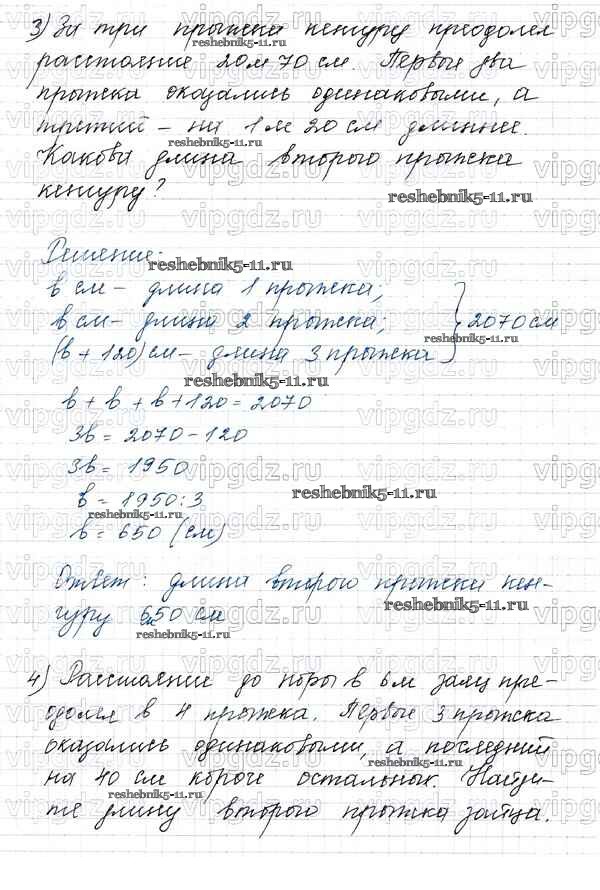 3) За три прыжка кенгуру преодолел
расстояние 20 м 70 см. Первые два
прыжка оказались одинаковыми, а
третий – на 1 м 20 см длиннее.
Какова длина второго прыжка
кенгуру?
Решение:
в см – длина 1 прыжка;
в см – длина 2 прыжка;
(в + 120) см – длина 3 прыжка } 2070 см
в + в + в + 120 = 2070
3в = 2070 - 120
3в = 1950
в = 1950 : 3
в = 650 (см)
Ответ: длина второго прыжка кен-
гуру 650 см
4) Расстояние до норы в 6 м заяц пре-
одолел в 4 прыжка. Первые 3 прыжка
оказались одинаковыми, а последний
на 40 см короче остальных. Найди-
те длину второго прыжка зайца.
reshebnik5-11.ru
vipgdz.ru